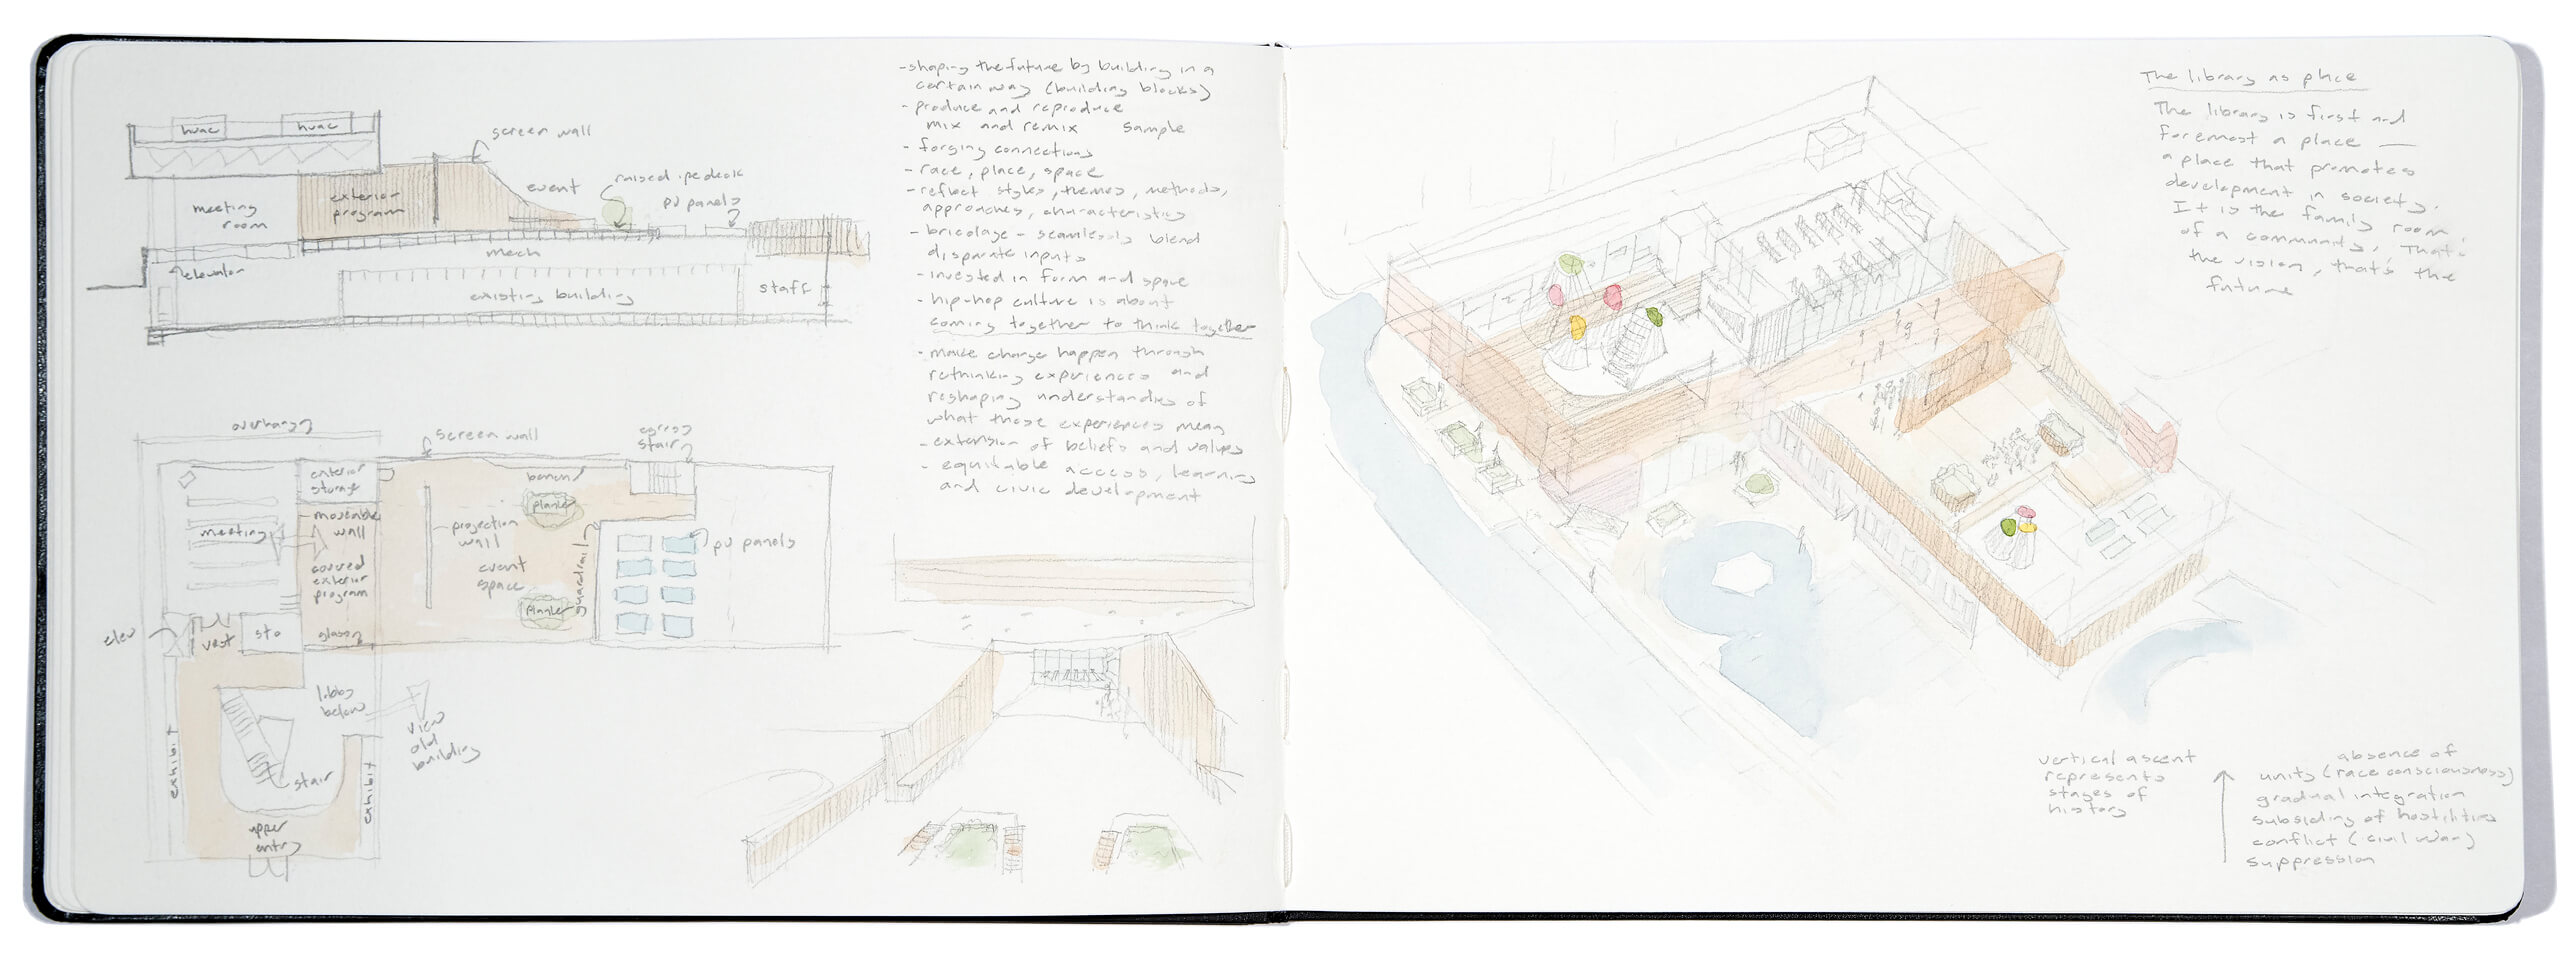 hvac
hvac
screen wall
event
raised ipe deck
pv panels
exterior
program
meeting
room
mech
elevator
existing building
staff
- shaping the future by building in a
certain way (building blocks)
- produce and reproduce
mix and remix sample
- forging connections
- race, place, space
- reflect styles, themes, methods,
approaches, characteristics
- bricolage - seamlessly blend
disparate inputs
- invested in form and space
- hip-hop culture is about
coming together to think together
- make change happen through
rethinking experiences and
reshaping understandings of
what those experiences mean
- extension of beliefs and values
- equitable access, learning
and civic development
overhang
screen wall
egress
stair
exterior
storage
bench
planter
moveable
wall
meeting
projection
wall
pv panels
covered
exterior
program
event
space
guardrail
planter
elev
vest
sto
glass
lobby
below
view
old
building
exhibit
stair
exhibit
upper
entry
The library as place
The library is first and
foremost a place —
a place that promotes
development in society.
It is the family room
of a community. That's
the vision, that's the
future
vertical ascent
represents
stages of
history
absence of
unity (race consciousness)
gradual integration
subsiding of hostilities
conflict (civil war)
suppression